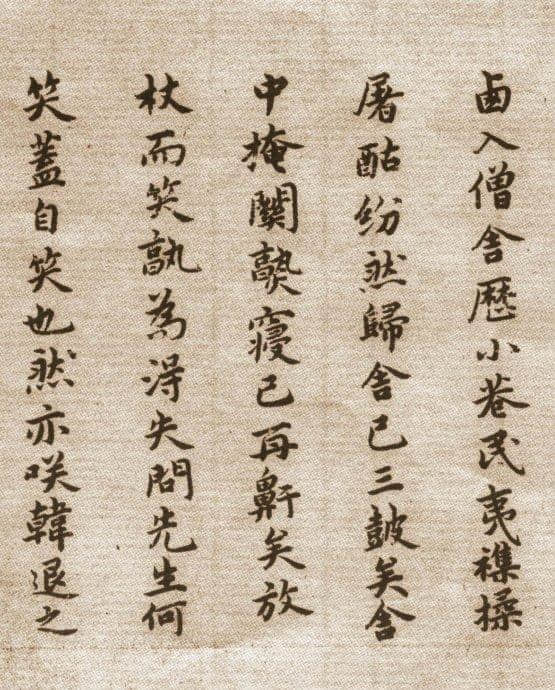 卤入僧舍歷小巷民夷襍揉
屠酤紛然歸舍已三皷矣舍
中掩關𤍠寢已再鼾矣放
杖而笑孰為淂失問先生何
笑蓋自笑也然亦咲韓退之